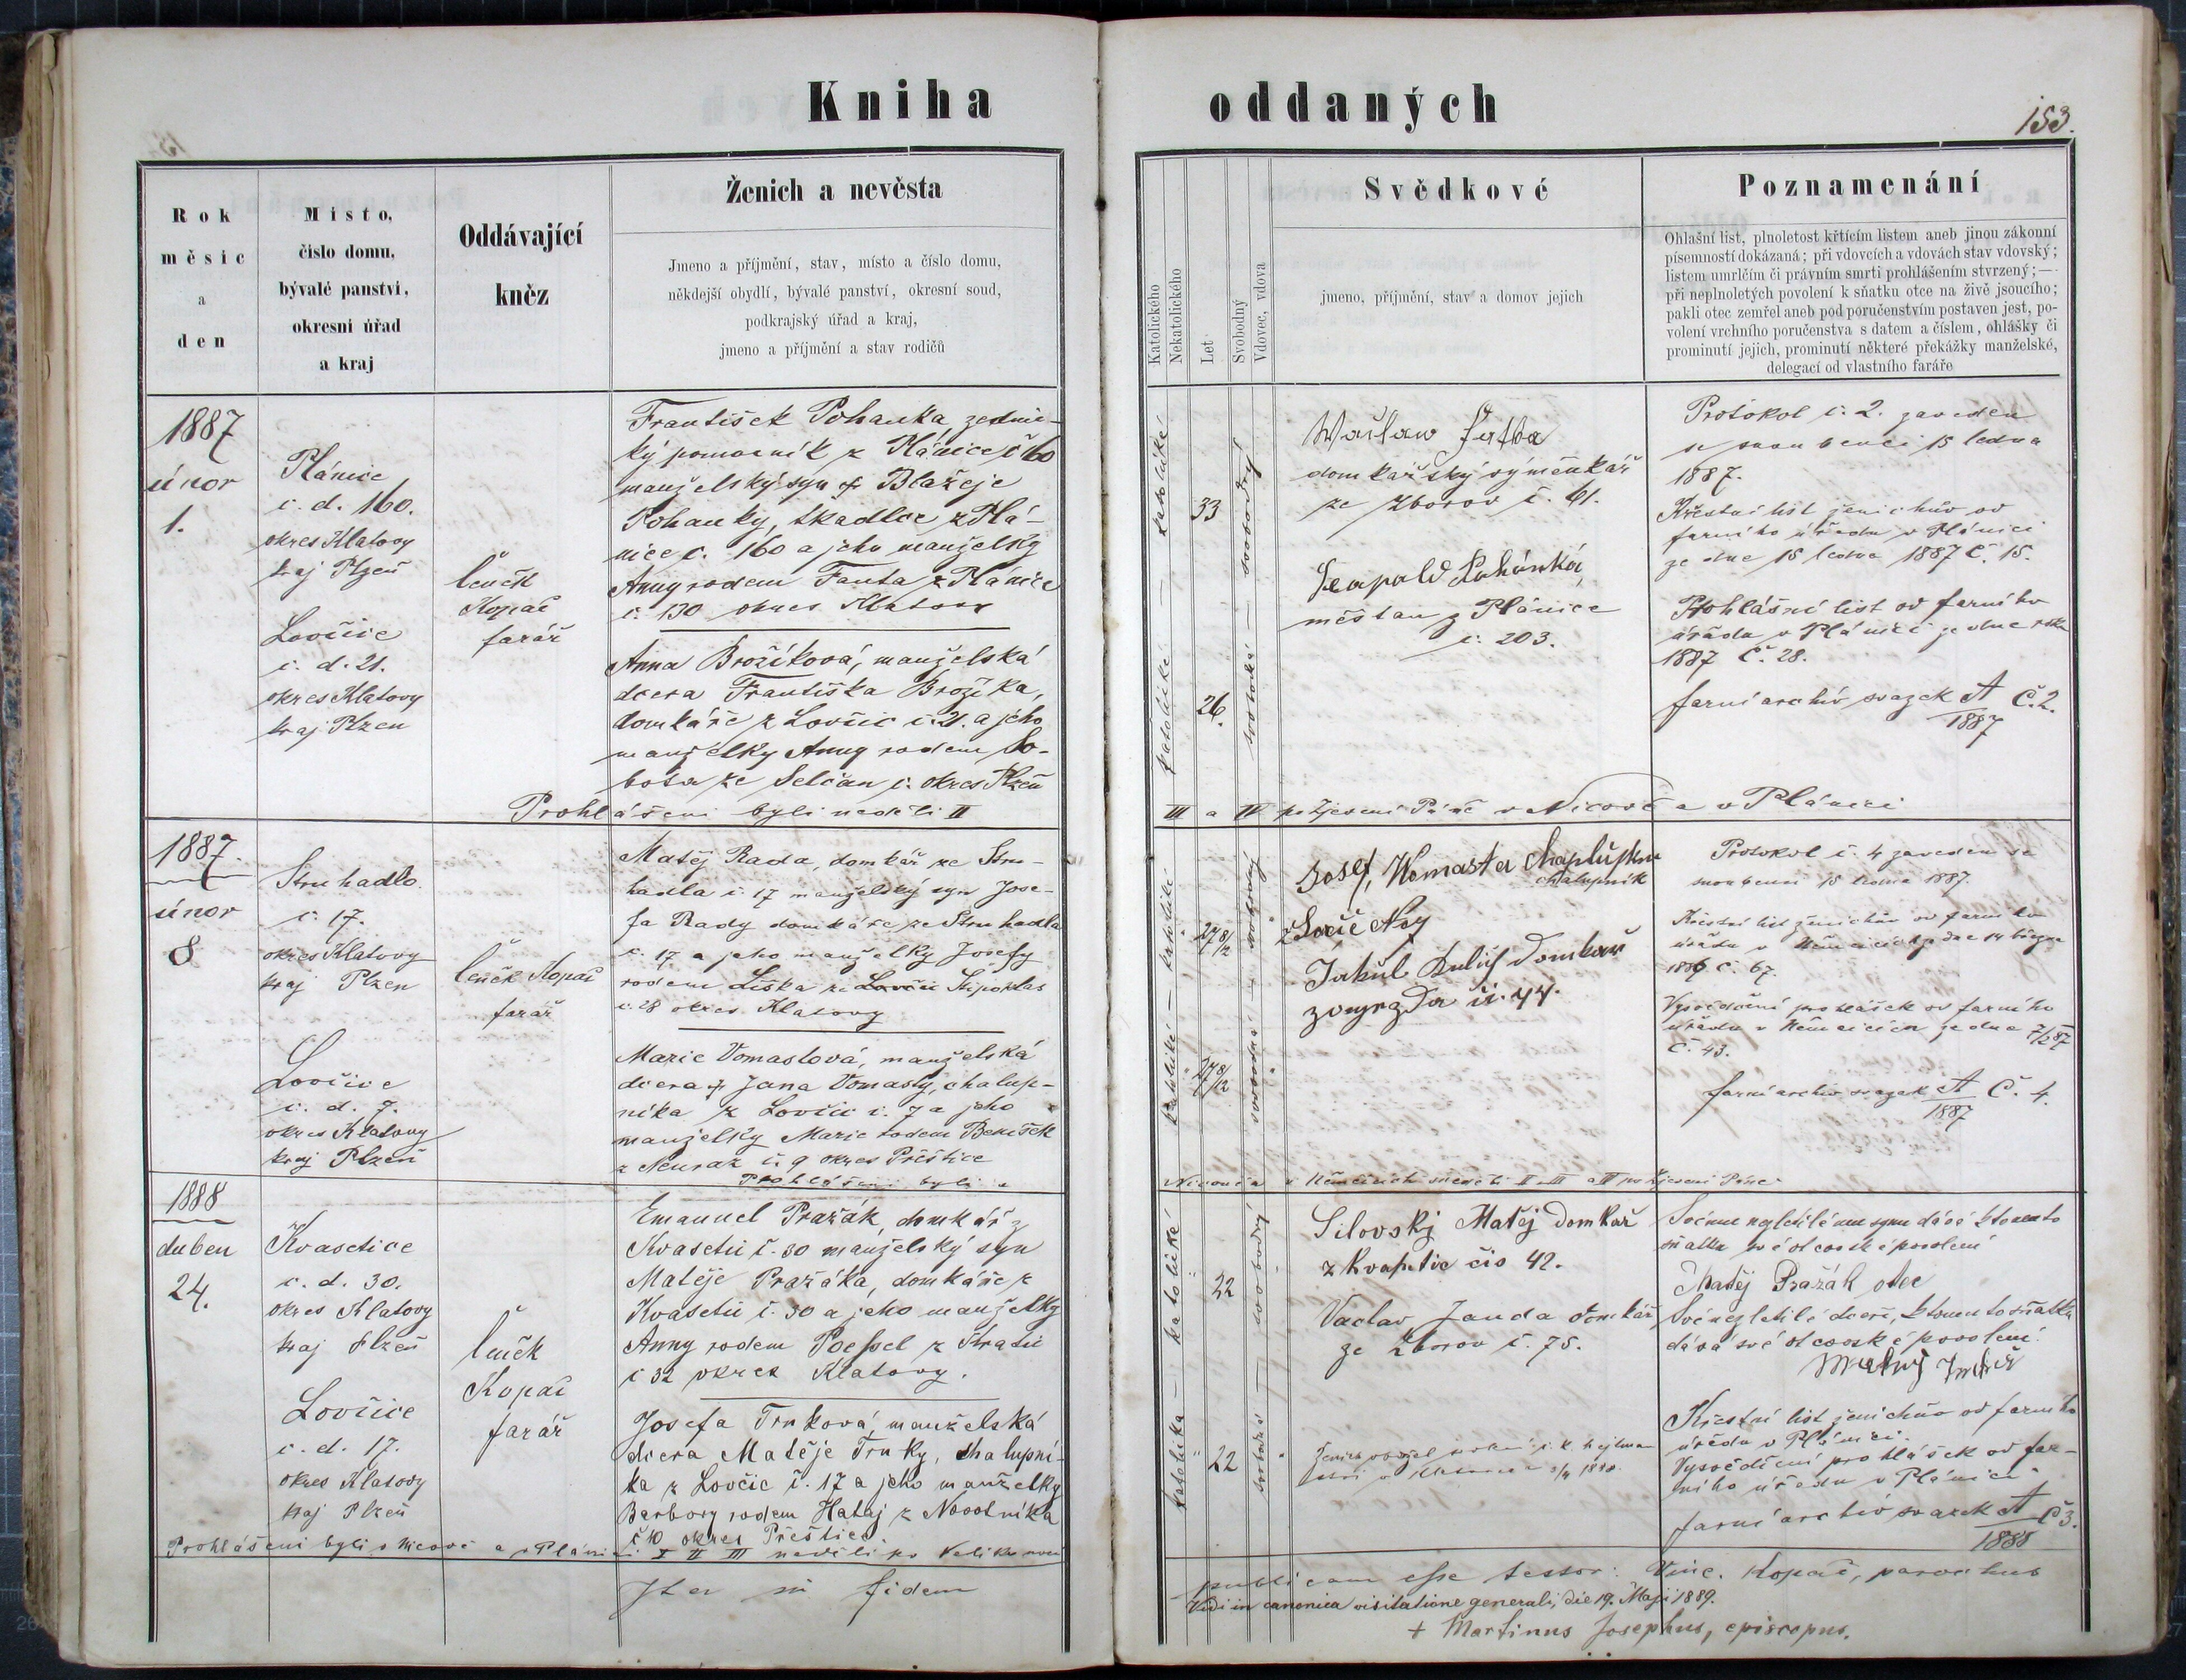 Kniha oddaných
153.
Rok
měsíc
a
den
Místo,
číslo domu,
bývalé panství,
okresní úřad
a kraj
Oddávající
kněz
Ženich a nevěsta
Jmeno a příjmění, stav, místo a číslo domu,
někdejší obydlí, bývalé panství, okresní soud,
podkrajský úřad a kraj,
jmeno a příjmění a stav rodičů
Katolického
Nekatolického
Let
Svobodný
Vdovec, vdova
Svědkové
jmeno, příjmění, stav a domov jejich
Poznamenání
Ohlašní list, plnoletost křtícím listem aneb jinou zákonní
písemností dokázaná; při vdovcích a vdovách stav vdovský;
listem umrlčím či právním smrti prohlášením stvrzený; —
při neplnoletých povolení k sňatku otce na živě jsoucího;
pakli otec zemřel aneb pod poručenstvím postaven jest, po-
volení vrchního poručenstva s datem a číslem, ohlášky či
prominutí jejich, prominutí některé překážky manželské,
delegací od vlastního faráře
1887
únor
1.
Plánice
č. d. 160.
okres Klatovy
kraj Plzeň
Lovčice
č. d. 21.
okres Klatovy
kraj Plzen
Čeněk
Kopač
farář
František Pohanka, zednic-
ký pomocník z Plánice č 160
manželský syn † Blažeje
Pohanky, tkadlce z Plá-
nice č. 160 a jeho manželky
Anny rodem Fanta z Plánice
č. 130 okres Klatovy
Anna Brožíková, manželská
dcera Františka Brožíka,
domkáře z Lovčic č. 21. a jeho
manželky Anny rodem So-
bota ze Selčan č. okres Plzeň
katolické
33
svobodný
katolické
26.
svobodná
domkařský výměnkář
ze Zborov č. 61.
Leapold
měšťan z Plánice
č. 203.
Protokol č. 2. zaveden
se snoubenci 15 ledna
1887.
Křestní list ženichův od
farního úřadu v Plánici
ze dne 15 ledna 1887 Č. 15.
Prohlášní list od farního
úřadu v Plánici ze dne
1887 Č. 28.
farní archiv svazek A Č. 2.
1887
Prohlášeni byli neděli II III a IV po Zjevení Páně v Nicově a v Plánici
1887.
únor
8
Struhadlo.
č. 17.
okres Klatovy
kraj Plzen
Lovčice
č. d. 7.
okres Klatovy
kraj Plzeň
Čeněk Kopač
farář
Matěj Rada, domkář ze Stru-
hadla č. 17 manželský syn Jose-
fa Rady domkáře ze Struhadla
č. 17 a jeho manželky Josefy
rodem Liška
č. 28 okres Klatovy
Marie Tomaslová, manželská
dcera † Jana Tomasty, chalup-
níka z Lovčic č. 7 a jeho
manželky Marie rodem Benešek
z Neuraz č. 9 okres Přeštice
Prohlášeni byli v
katolické
27 8/12
svobodný
katolické
27 8/12
svobodná
Josef,
chalupník
Jakub domkář
č. 44.
Protokol č. 4 zaveden se
snoubenci 15 ledna 1887.
Křestní list ženichův od farního
úřadu v
Č. 67.
Vysvědčení prohlášek od farního
úřadu v Němčicích ze dne 7/2 87
Č. 43.
farní archiv svazek A Č. 4.
1887
Nicově a v Němčicích neděli II III a IV po Zjevení Páně
1888
duben
24.
Kvasetice
č. d. 30.
okres Klatovy
kraj Plzeň
Lovčice
č. d. 17.
okres Klatovy
kraj Plzeň
Čeněk
Kopač
farář
Emanuel Pražák, domkář z
Kvasetic č. 30 manželský syn
Matěje Pražáka, domkáře z
Kvasetic č. 30 a jeho manželky
Anny rodem
č 32 okres Klatovy.
Josefa Trnková, manželská
dcera Matěje Trnky, chalupní-
ka z Lovčic č. 17 a jeho manželky
Barbory rodem Hataj z Novotníka
č 10 okres Přeštice.
katolické
22
svobodný
katolická
22
svobodná
Silovský Matěj Domkař
z Kvasetic čis 42.
Vaclav Janda domkář
ze Zborov č. 75.
Svému nezletilému synu dává k tomuto
sňatku své otcovské povolení
Matěj Pražák otec
Své nezletilé dceři, k tomuto sňatku
dává své otcovské povolení.
Křestní list ženichův od farního
úřadu v Plánici.
Vysvědčení prohlášek od far-
ního úřadu v Plánici
farní archiv svazek A Č 3.
1888
Prohlášeni byli v Nicově a v Plánici I II III neděli po Velikonoci
In fidem
publicam esse testor: Vinc. Kopač, parochus
Vidi in canonica visitatione generali, die 19. Maji 1889.
+ Martinus Josephus, episcopus.